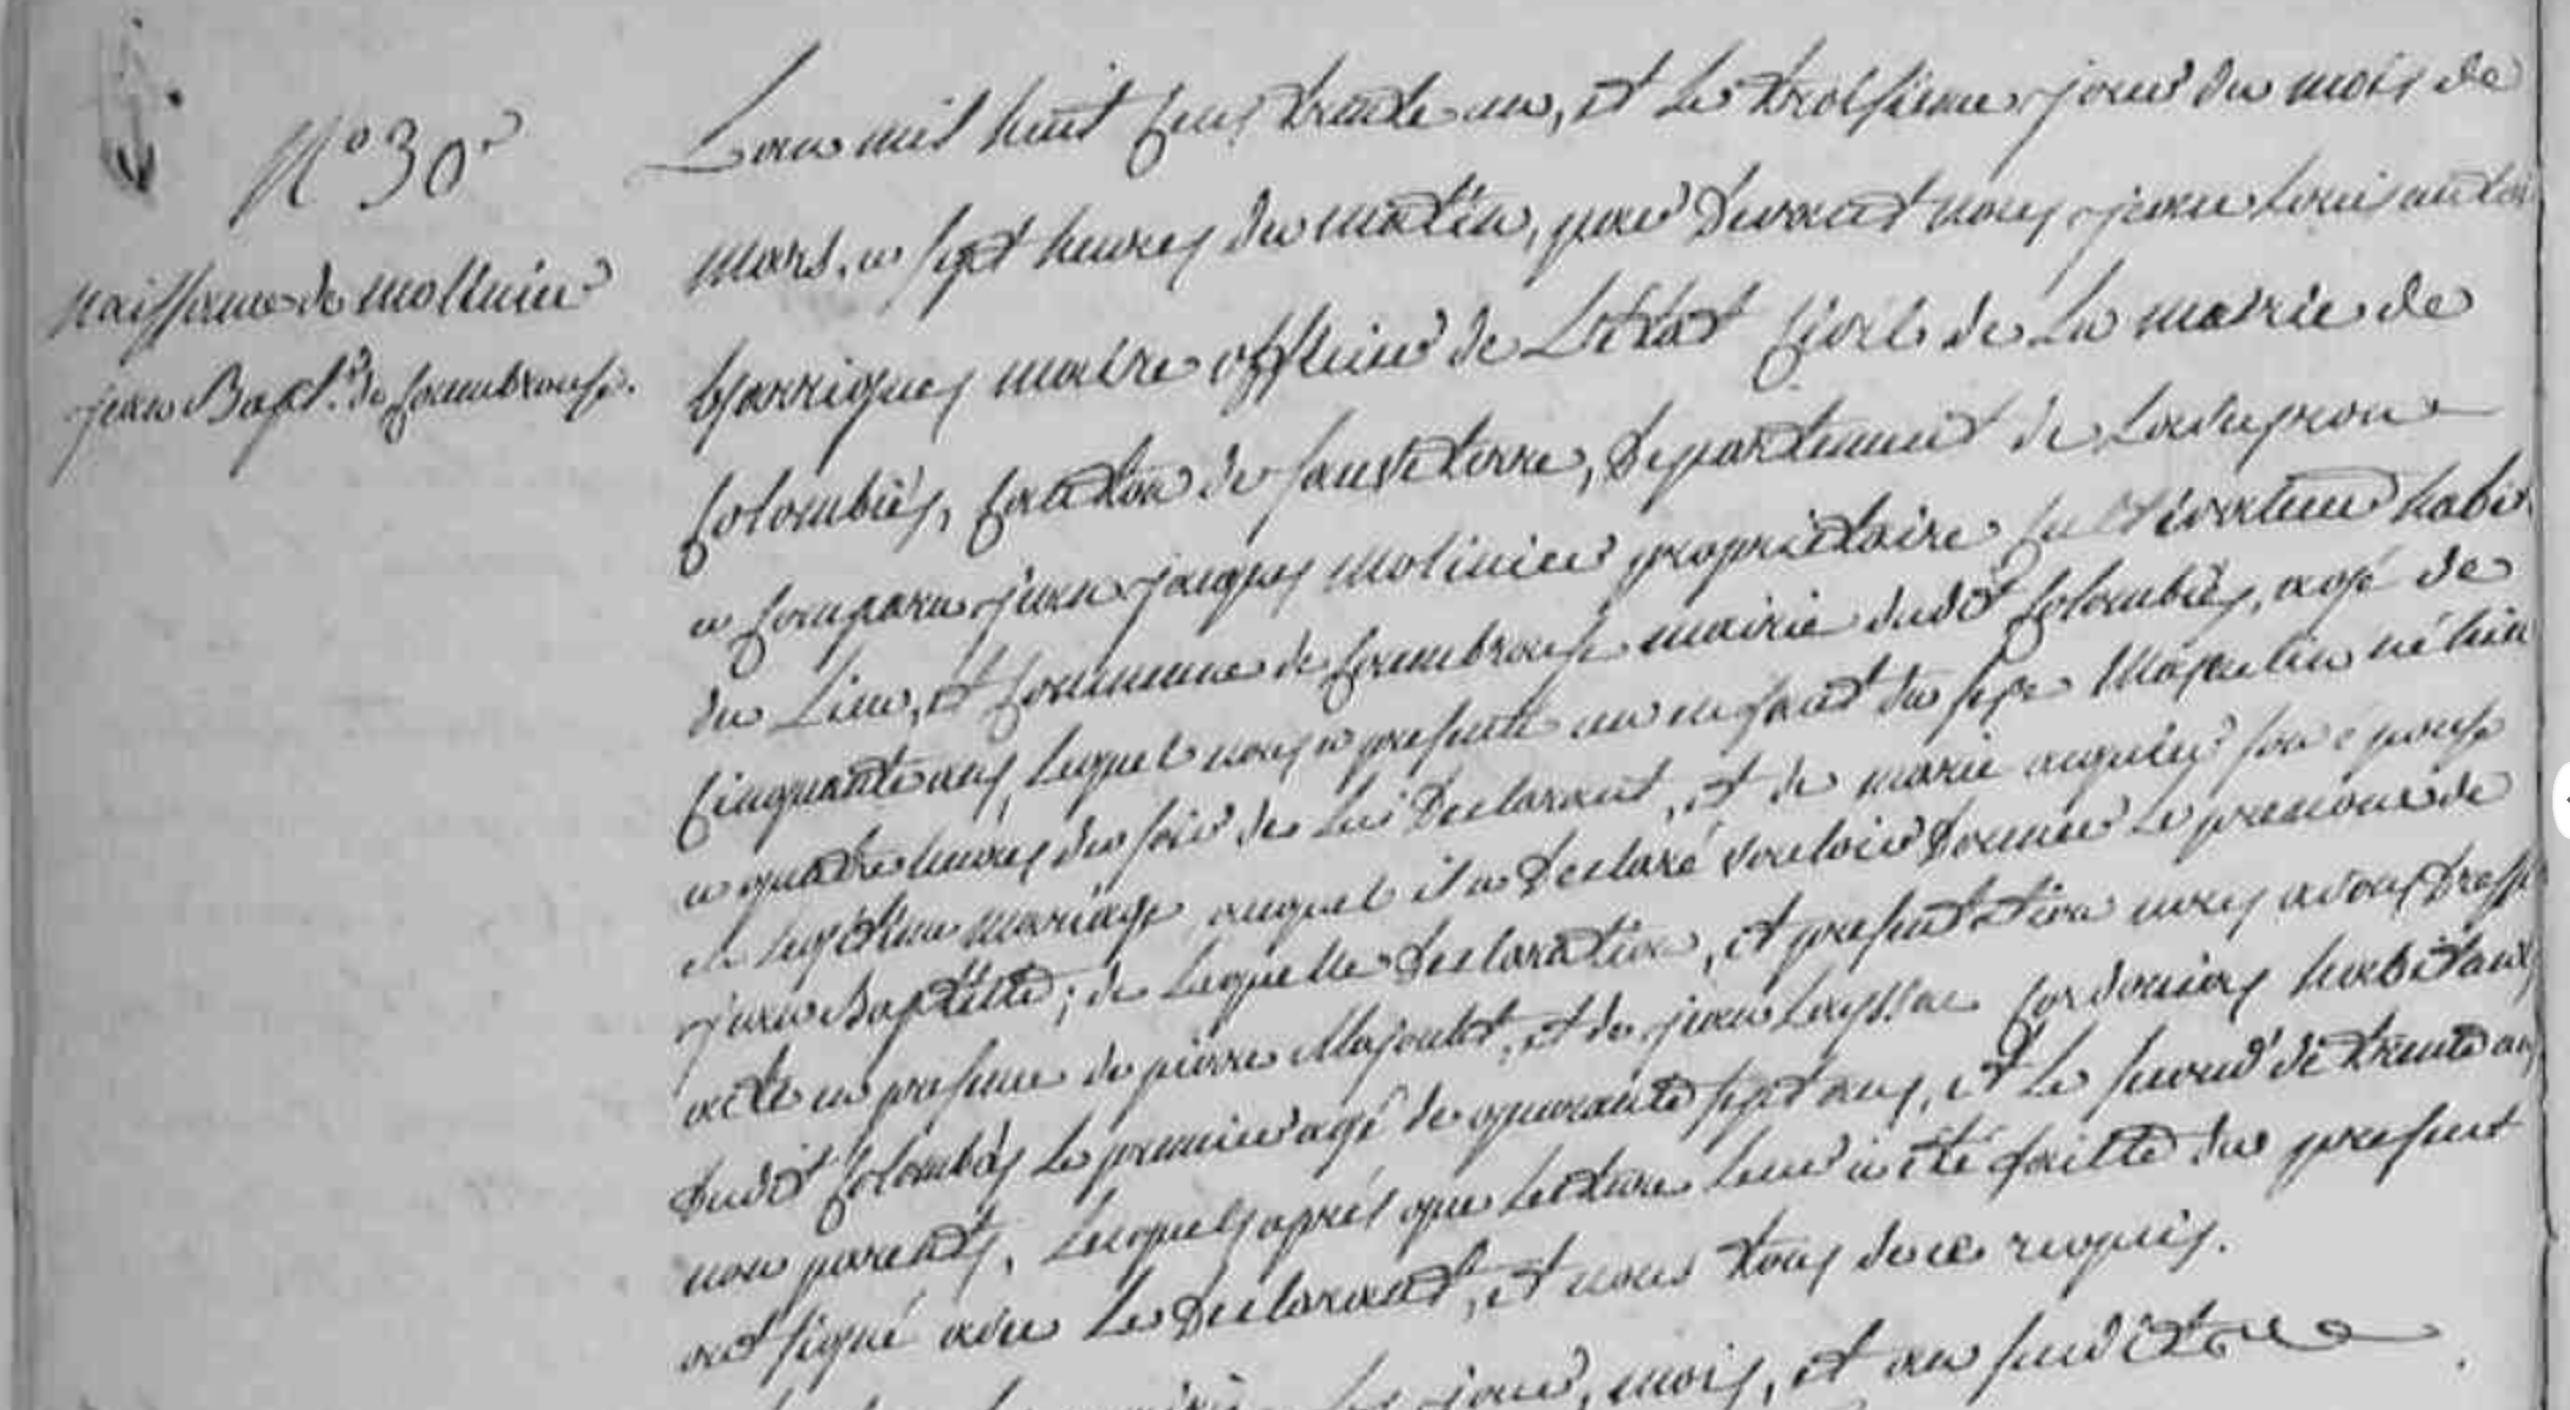 N° 30
naissance de molinier
jean Bapt.te de Combrouse.
L'an mil huit cens trente un, et le troisieme jour du mois de
mars, a sept heures du matin, par devant nous jean louis antoi
Garrigues maire officier de L'état Civil de La mairie de
Colombiés, Canton de sauveterre, Departement de L'aveyron
a Comparu jean jacques molinier proprietaire Cultivateur habit
du Lieu, et Commune de Combrouse mairie dudit Colombiés, agé de
Cinquante ans, lequel nous a presenté un enfant du sexe Masculin né hier
a quatre heures du soir de lui Declarant, et de marie son épouse
en legitime mariage auquel il a Declaré vouloir Donner le prenom de
jean Baptiste; de laquelle Declaration, et presentation nous avons Dressé
acte en presence de pierre et de jean Cordoniers habitans
dudit Colombiés le premier agé de quarante sept ans, et le second de trente ans
non parents, lesquels aprés que lecture leur a été faitte du present
ont signé avec le Declarant, et nous tous de ce requis.
jour, mois, et an susdit